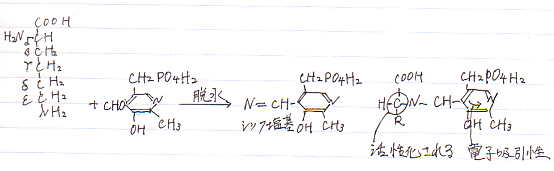 COOH
H₂N α H
β CH₂
γ CH₂
δ CH₂
ε CH₂
NH₂
+
CH₂PO4H₂
CHO N
OH CH₃
脱水
CH₂PO4H₂
N=CH- N
シッフ塩基 OH CH₃
COOH
CH₂PO4H₂
H-C-N-CH- N
R
OH CH₃
活性化される 電子吸引性